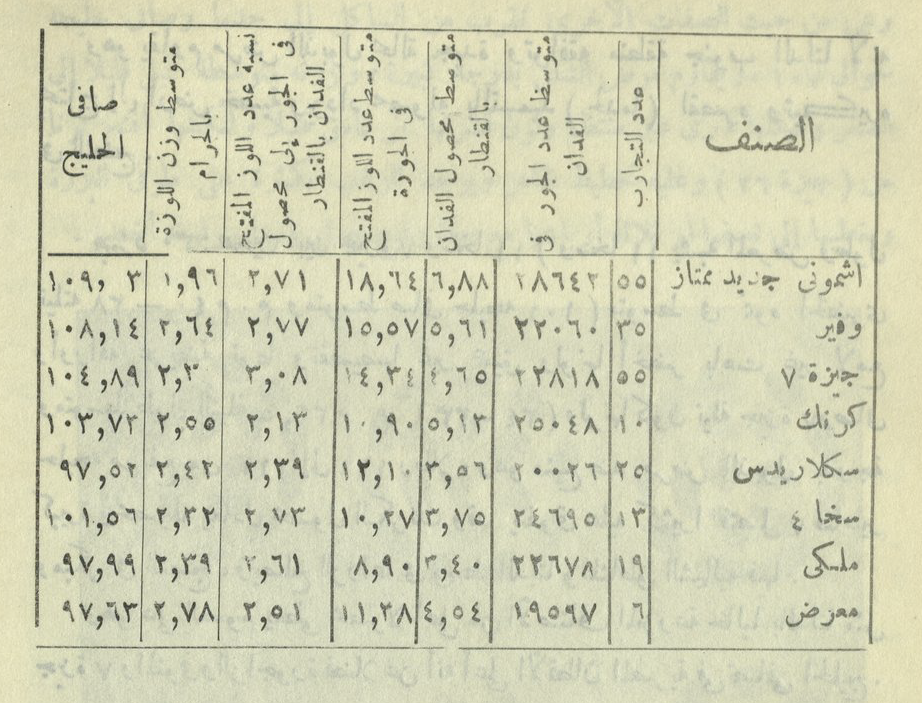 الصنف | عدد التجارب | متوسط عدد الجور فى الفدان | متوسط محصول الفدان بالقنطار | متوسط عدد اللوز المفتح فى الجورة | نسبة عدد اللوز المفتح فى الجورة إلى محصول الفدان بالقنطار | متوسط وزن اللوزة بالجرام | صافى الحليج
اشمونى جديد ممتاز | ٥٥ | ٢٨٦٤٢ | ٦,٨٨ | ١٨,٦٤ | ٢,٧١ | ١,٩٦ | ١٠٩,٠٣
وفير | ٣٥ | ٢٢٠٦٠ | ٥,٦١ | ١٥,٥٧ | ٢,٧٧ | ٢,٦٤ | ١٠٨,١٤
جيزة ٧ | ٥٥ | ٢٢٨١٨ | ٤,٦٥ | ١٤,٣٤ | ٣,٠٨ | ١٠٤,٨٩
كرنك | ١٠ | ٢٥٠٤٨ | ٥,١٢ | ١٠,٩٠ | ٢,١٣ | ٢,٥٥ | ١٠٣,٧٢
سكلاريدس | ٢٥ | ٢٠٠٢٦ | ٣,٥٦ | ٢,٣٩ | ٢,٤٢ | ٩٧,٥٢
سخا ٤ | ١٣ | ٢٤٦٩٥ | ٣,٧٥ | ١٠,٢٧ | ٢,٧٣ | ٢,٢٢ | ١٠١,٥٦
ملكى | ١٩ | ٢٢٦٧٨ | ٣,٤٠ | ٨,٩٠ | ٢,٦١ | ٢,٣٩ | ٩٧,٩٩
معرض | ٦ | ١٩٥٩٧ | ٤,٥٤ | ١١,٢٨ | ٢,٥١ | ٢,٧٨ | ٩٧,٦٣